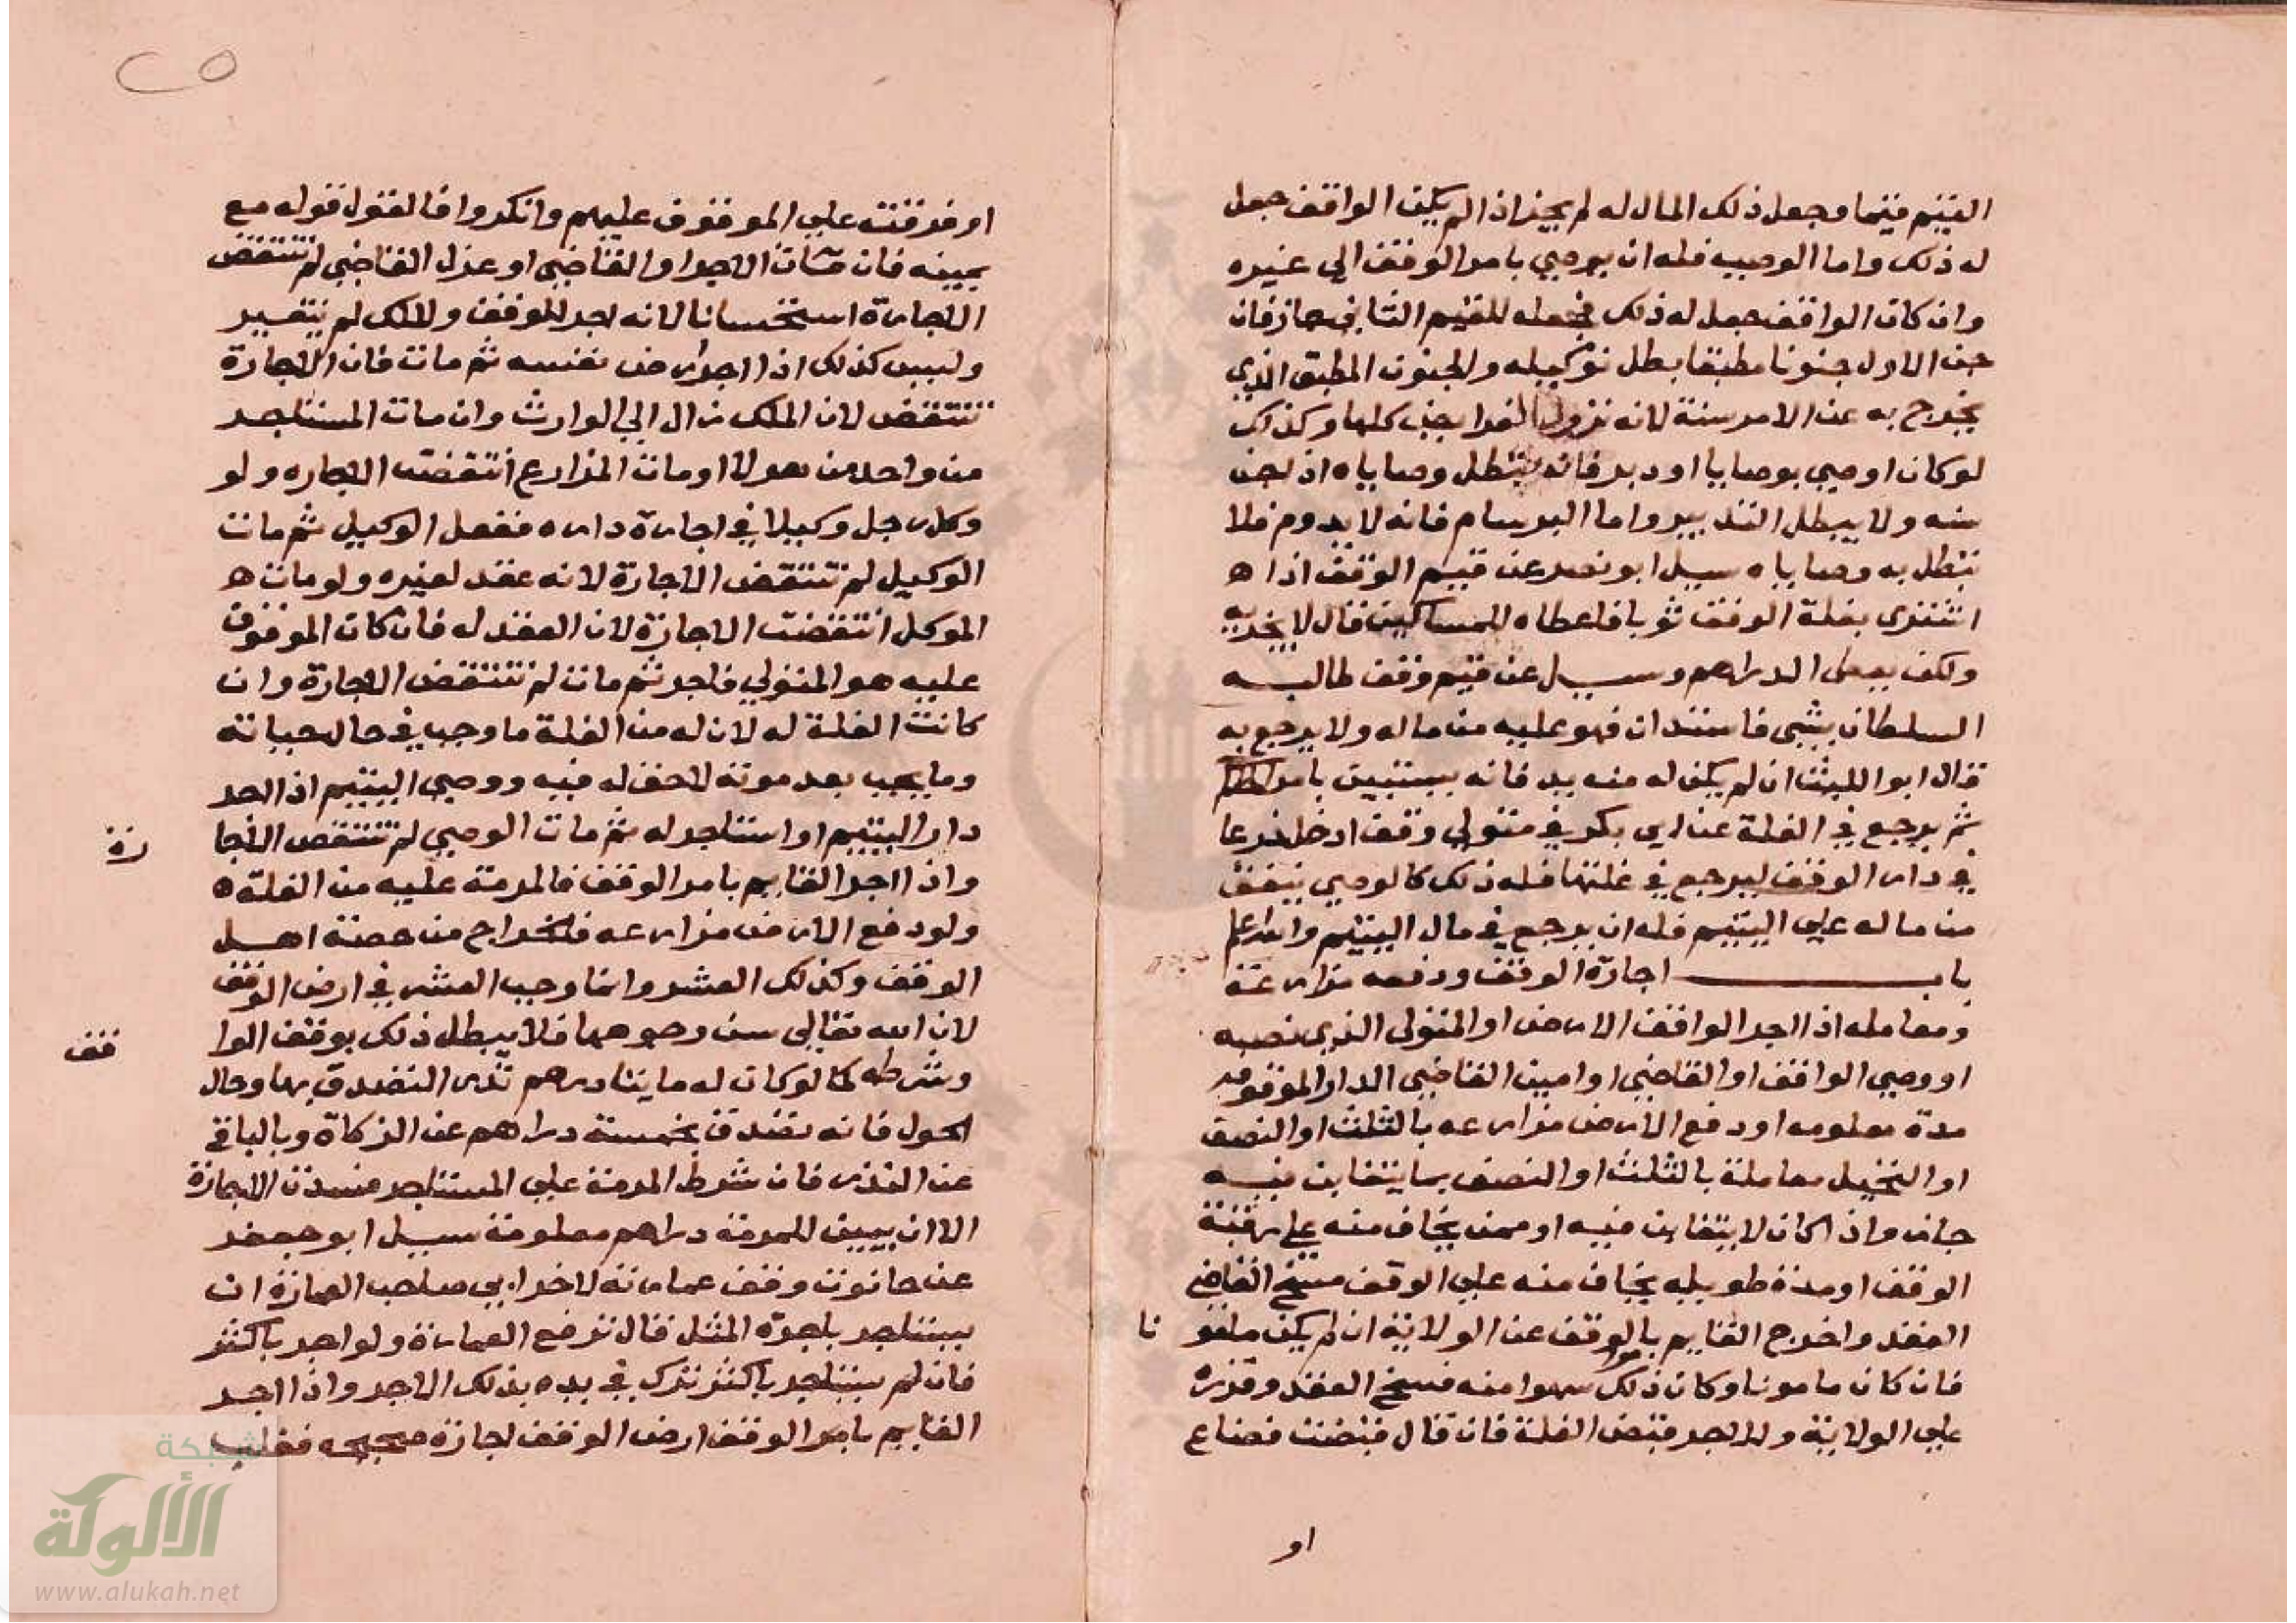 القيم قيما وجعل ذلك المال له لم يجز اذا لم يكن الواقف جعل
له ذلك واما الوصيه فله ان يوصي بامر الوقف الي غيره
وان كان الواقف جعل له ذلك فجعله للقيم الثاني جاز فان
جن الاول جنونا مطبقا بطل توكيله والجنون المطبق الذي
يخرج به عن الامر سنة لانه تزول الفرايض كلها وكذلك
لو كان اوصي بوصايا او دبر فانه تبطل وصاياه اذا جن
سنه ولا يبطل التدبير واما البرسام فانه لا يدوم فلا
تبطل به وصاياه سيل ابو نصر عن قيم الوقف اذا ه
اشترى بغلة الوقف ثوبا فاعطاه للمساكين قال لا يجزيه
ولكن يعطى الدراهم وسيل عن قيم وقف طالبه
السلطان بشي فاستدان فهو عليه من ماله ولا يرجع به
قال ابو الليث ان لم يكن له منه بد فانه يستدين بامر الحاكم
ثم يرجع في الغلة عن ابي بكر في متولي وقف ادخل جذعا
في دار الوقف ليرجع في غلتها فله ذلك كالوصي ينفق
من ماله علي اليتيم فله ان يرجع في مال اليتيم والله اعلم
باب اجارة الوقف ودفعه مزارعة
ومعامله اذا اجر الواقف الارض او المتولى الذي نصبه
او وصي الواقف او القاضي او امين القاضي الدار الموقوفه
مدة معلومه او دفع الارض مزارعه بالثلث او النصف
او النخيل معاملة بالثلث او النصف بما يتغابن فيه
جاز واذا كان لا يتغابن فيه او ممن يخاف منه علي رقبة
الوقف او مدة طويله يخاف منه علي الوقف فسخ القاضي
العقد واخرج القايم بالوقف عن الولاية ان لم يكن مامو نا
فان كان مامونا وكان ذلك سهوا منه فسخ العقد وقرره
علي الولاية وللاجر قبض الغلة فان قال قبضت فضاع
او
٢٥
او فرقت علي الموقوف عليهم وانكروا فالقول قوله مع
يمينه فان مات الاجر او القاضي او عزل القاضي لم تنتقض
الاجارة استحسانا لانه اجر للوقف ولان لم يتغير
وليس كذلك اذا اجر ارض نفسه ثم مات فان الاجارة
تنتقض لان الملك زال الي الوارث وان مات المستاجر
من واحد من هولا او مات المزارع انتقضت الاجاره ولو
وكل رجل وكيلا في اجارة داره ففعل الوكيل ثم مات
الوكيل لم تنتقض الاجارة لانه عقد لغيره ولو مات ه
الموكل انتقضت الاجارة لان العقد له فان كان الموقوف
عليه هو المتولي فاجر ثم مات لم تنتقض الاجارة وان
كانت الغلة له لان له من الغلة ما وجب في حال حياته
وما يجب بعد موته لا حق له فيه ووصي اليتيم اذا اجر
دار اليتيم او استاجر له ثم مات الوصي لم تنتقض الاجا رة
واذا اجر القايم بامر الوقف فالمرمة عليه من الغلة ه
ولو دفع الارض مزارعه فالخراج من حصة اهل
الوقف وكذلك العشر وانما وجب العشر في ارض الوقف
لان الله تعالى وجوهها فلا يبطل ذلك بوقف الوا قف
وشرطه كما لو كان له مايتا درهم نذر التصدق بها وحال
الحول فانه تصدق بخمسة دراهم عن الزكاة وبالباقي
عن النذر فان شرط المرمة علي المستاجر فسدت الاجارة
الا ان يبين للمرمة دراهم معلومة سيل ابو جعفر
عن حانوت وقف عمارته لاخر ابي صاحب العمارة ان
يستاجر باجرة المثل قال ترفع العمارة ولو اجر باكثر
فان لم يستاجر باكثر ترك في يده بذلك الاجر واذا اجر
القايم بامر الوقف ارض الوقف اجارة صحيحه فغلب
شبكة
الألوكة
www.alukah.net